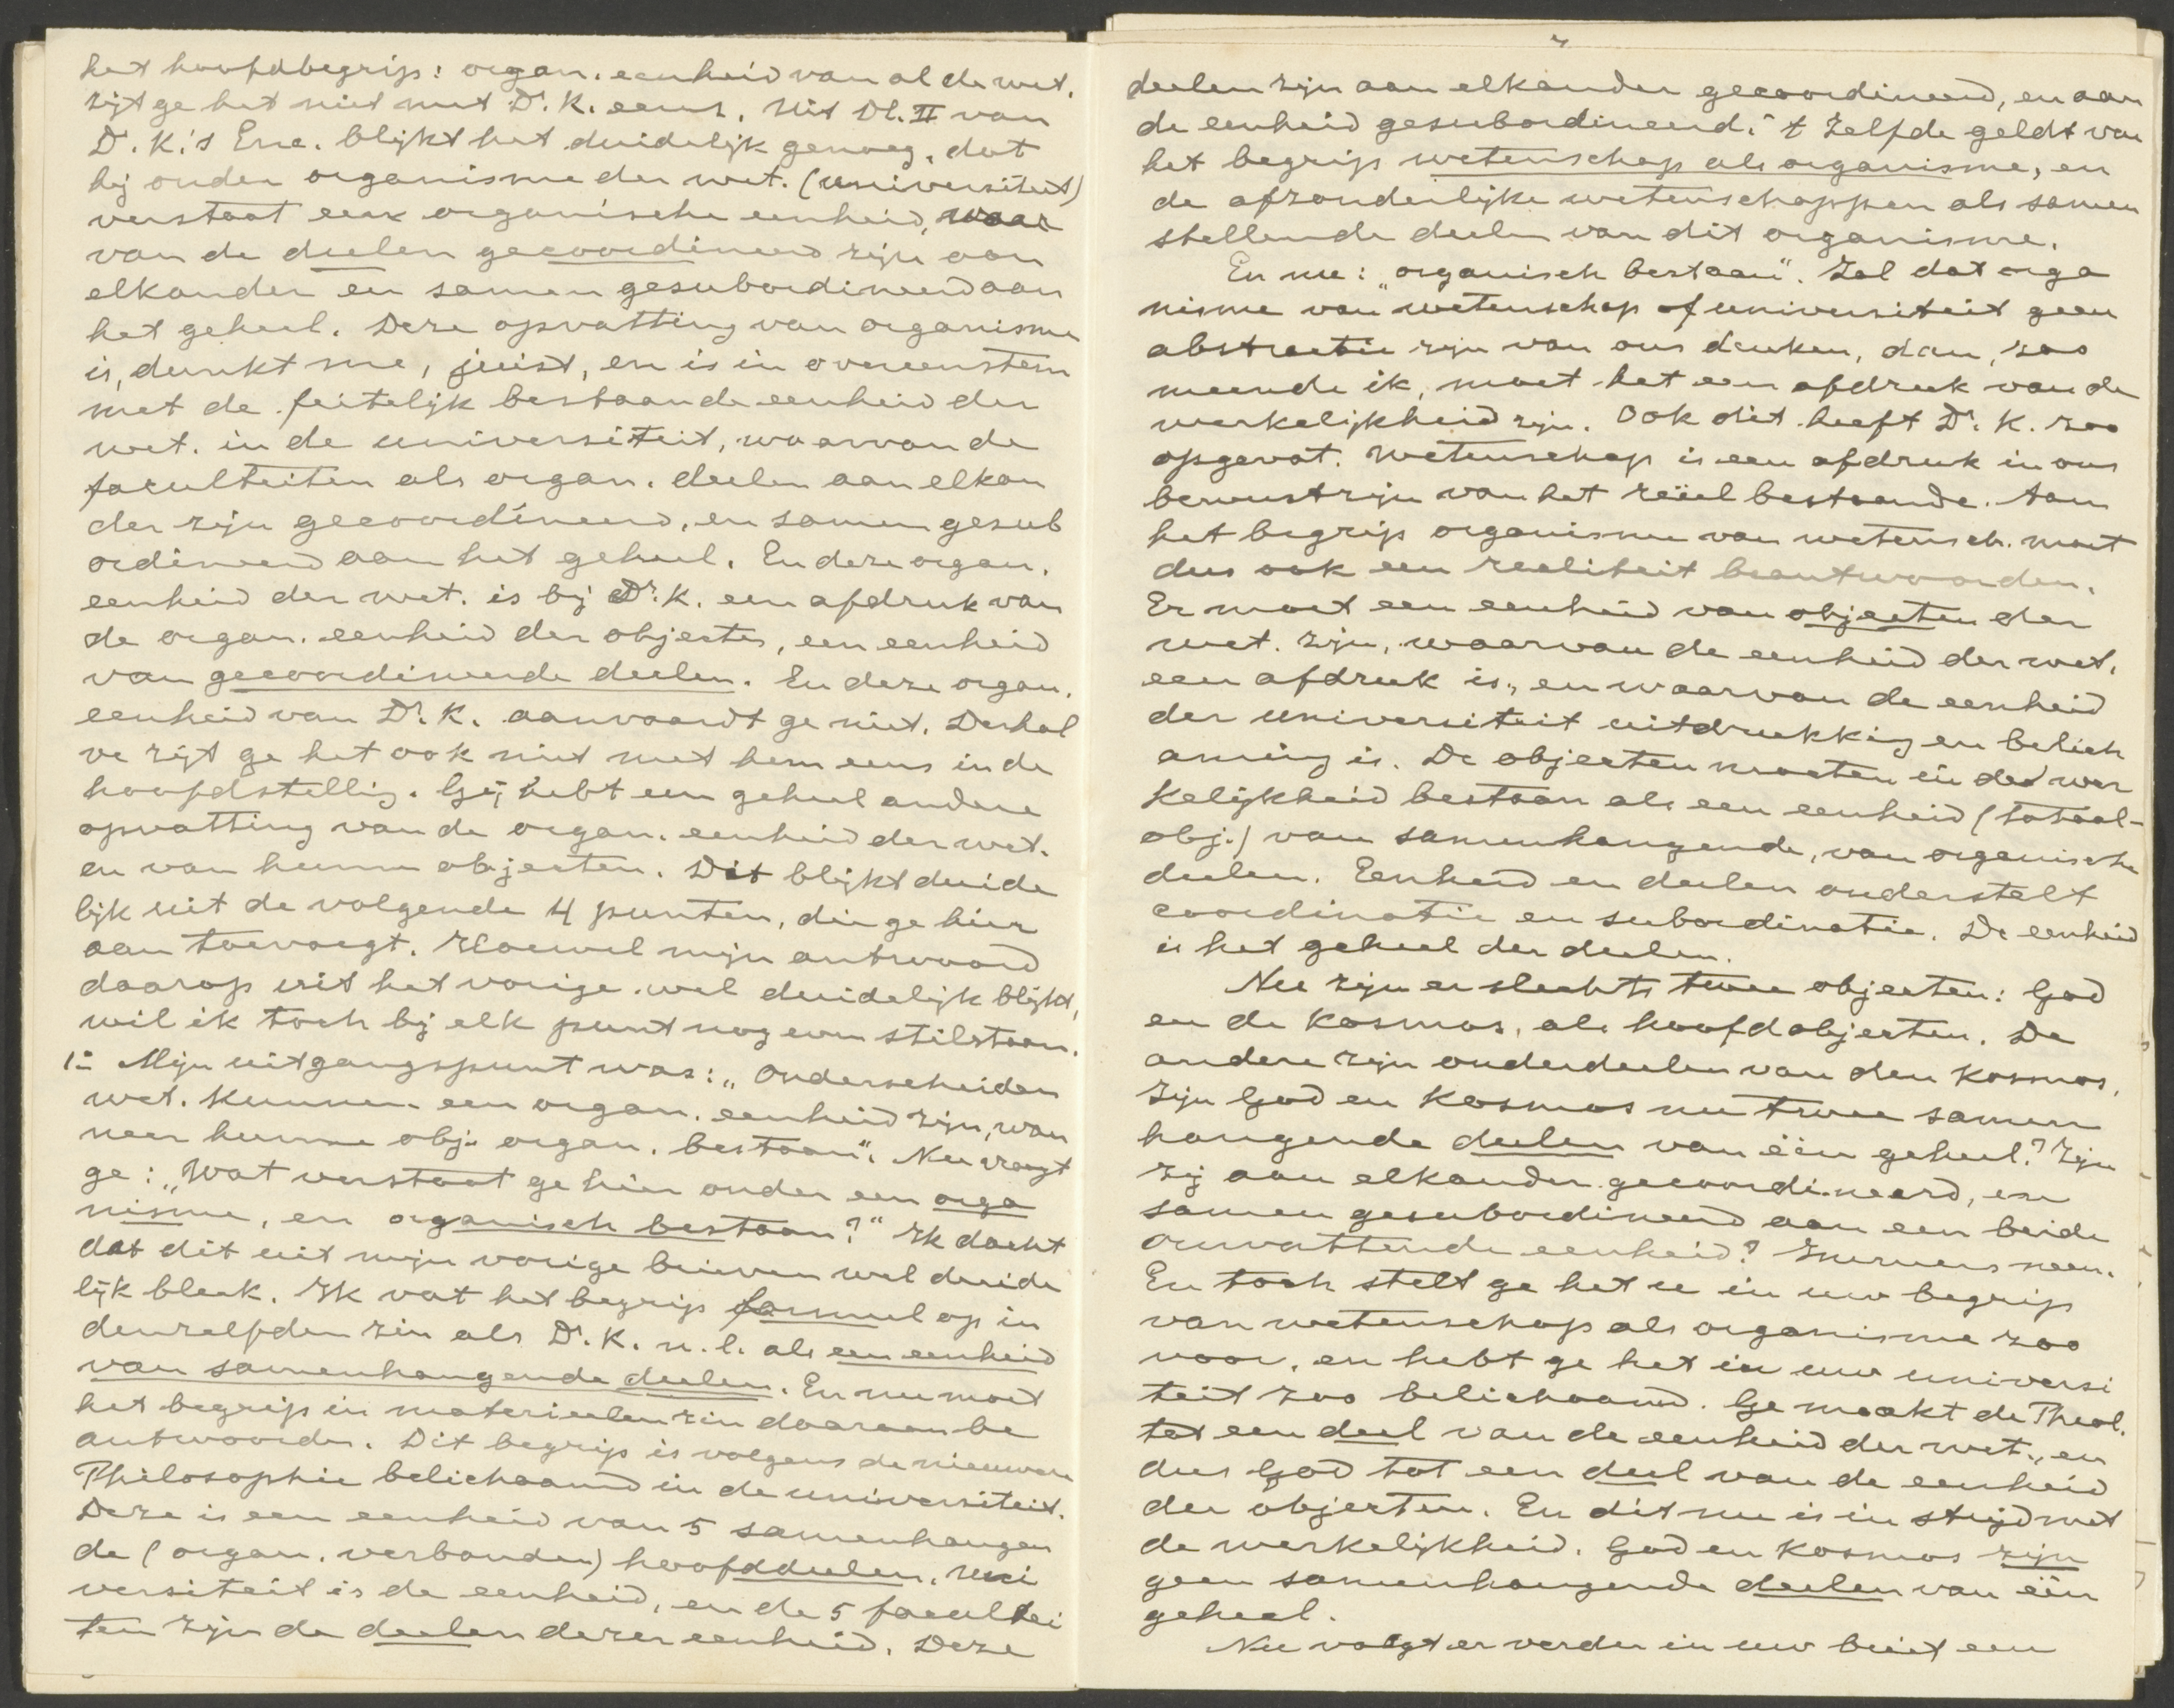 het hoofdbegrip: organ. eenheid van al de wet.
zijt ge het niet met Dr. K. eens. Uit Dl. II van
Dr. K.'s Enc. blijkt het duidelijk genoeg, dat
hij onder organisme der wet. (universiteit)
verstaat een organische eenheid, waar
van de deelen gecoordineerd zijn aan
elkander en samen gesubordineerd aan
het geheel. Deze opvatting van organisme
is, dunkt me, juist, en is in overeenstem
met de feitelijk bestaande eenheid der
wet. in de universiteit, waarvan de
faculteiten als organ. deelen aan elkan
der zijn gecoordineerd, en samen gesub
ordineerd aan het geheel. En deze organ.
eenheid der wet. is bij Dr. K. een afdruk van
de organ. eenheid der objecten, een eenheid
van gecoordineerde deelen. En deze organ.
eenheid van Dr. K. aanvaardt ge niet. Derhal
ve zijt ge het ook niet met hem eens in de
hoofdstellig. Gij hebt een geheel andere
opvatting van de organ. eenheid der wet.
en van hunne objecten. Dit blijkt duide
lijk uit de volgende 4 punten, die ge hier
aan toevoegt. Hoewel mijn antwoord
daarop uit het vorige wel duidelijk blijkt,
wil ik toch bij elk punt nog even stilstaan.
1º Mijn uitgangspunt was: „Onderscheiden
wet. kunnen een organ. eenheid zijn, wan
neer hunne obj. organ. bestaan". Nu vraagt
ge: „Wat verstaat ge hier onder een orga
nisme, en organisch bestaan?" Ik dacht
dat dit uit mijn vorige brieven wel duide
lijk bleek. Ik vat het begrip formeel op in
denzelfden zin als Dr. K. n.l. als een eenheid
van samenhangende deelen. En nu moet
het begrip in materieelen zin daaraan be
antwoorden. Dit begrip is volgens de nieuwere
Philosophie belichaamd in de universiteit.
Deze is een eenheid van 5 samenhangen
de (organ. verbonden) hoofddeelen. Uni
versiteit is de eenheid, en de 5 facultei
ten zijn de deelen dezer eenheid. Deze
deelen zijn aan elkander gecoordineerd, en aan
de eenheid gesubordineerd. 't Zelfde geldt van
het begrip wetenschap als organisme, en
de afzonderlijke wetenschappen als samen
stellende deelen van dit organisme.
En nu: „organisch bestaan". Zal dat orga
nisme van wetenschap of universiteit geen
abstractie zijn van ons denken, dan, zoo
meende ik, moet het een afdruk van de
werkelijkheid zijn. Ook dit heeft Dr. K. zoo
opgevat. Wetenschap is een afdruk in ons
bewustzijn van het reëel bestaande. Aan
het begrip organisme van wetensch. moet
dus ook een realiteit beantwoorden.
Er moet een eenheid van objecten der
wet. zijn, waarvan de eenheid der wet.
een afdruk is, en waarvan de eenheid
der universiteit uitdrukking en belich
aming is. De objecten moeten in de wer
kelijkheid bestaan als een eenheid (totaal-
obj.) van samenhangende, van organische
deelen. Eenheid en deelen onderstelt
coordinatie en subordinatie. De eenheid
is het geheel der deelen.
Nu zijn er slechts twee objecten: God
en de Kosmos, als hoofdobjecten. De
andere zijn onderdeelen van den Kosmos.
Zijn God en Kosmos nu twee samen
hangende deelen van één geheel? Zijn
zij aan elkander gecoordineerd, en
samen gesubordineerd aan een beide
omvattende eenheid? Immers neen.
En toch stelt ge het u in uw begrip
van wetenschap als organisme zoo
voor, en hebt ge het in uw universi
teit zoo belichaamd. Ge maakt de Theol.
tot een deel van de eenheid der wet., en
dus God tot een deel van de eenheid
der objecten. En dit nu is in strijd met
de werkelijkheid. God en Kosmos zijn
geen samenhangende deelen van één
geheel.
Nu volgt er verder in uw brief een